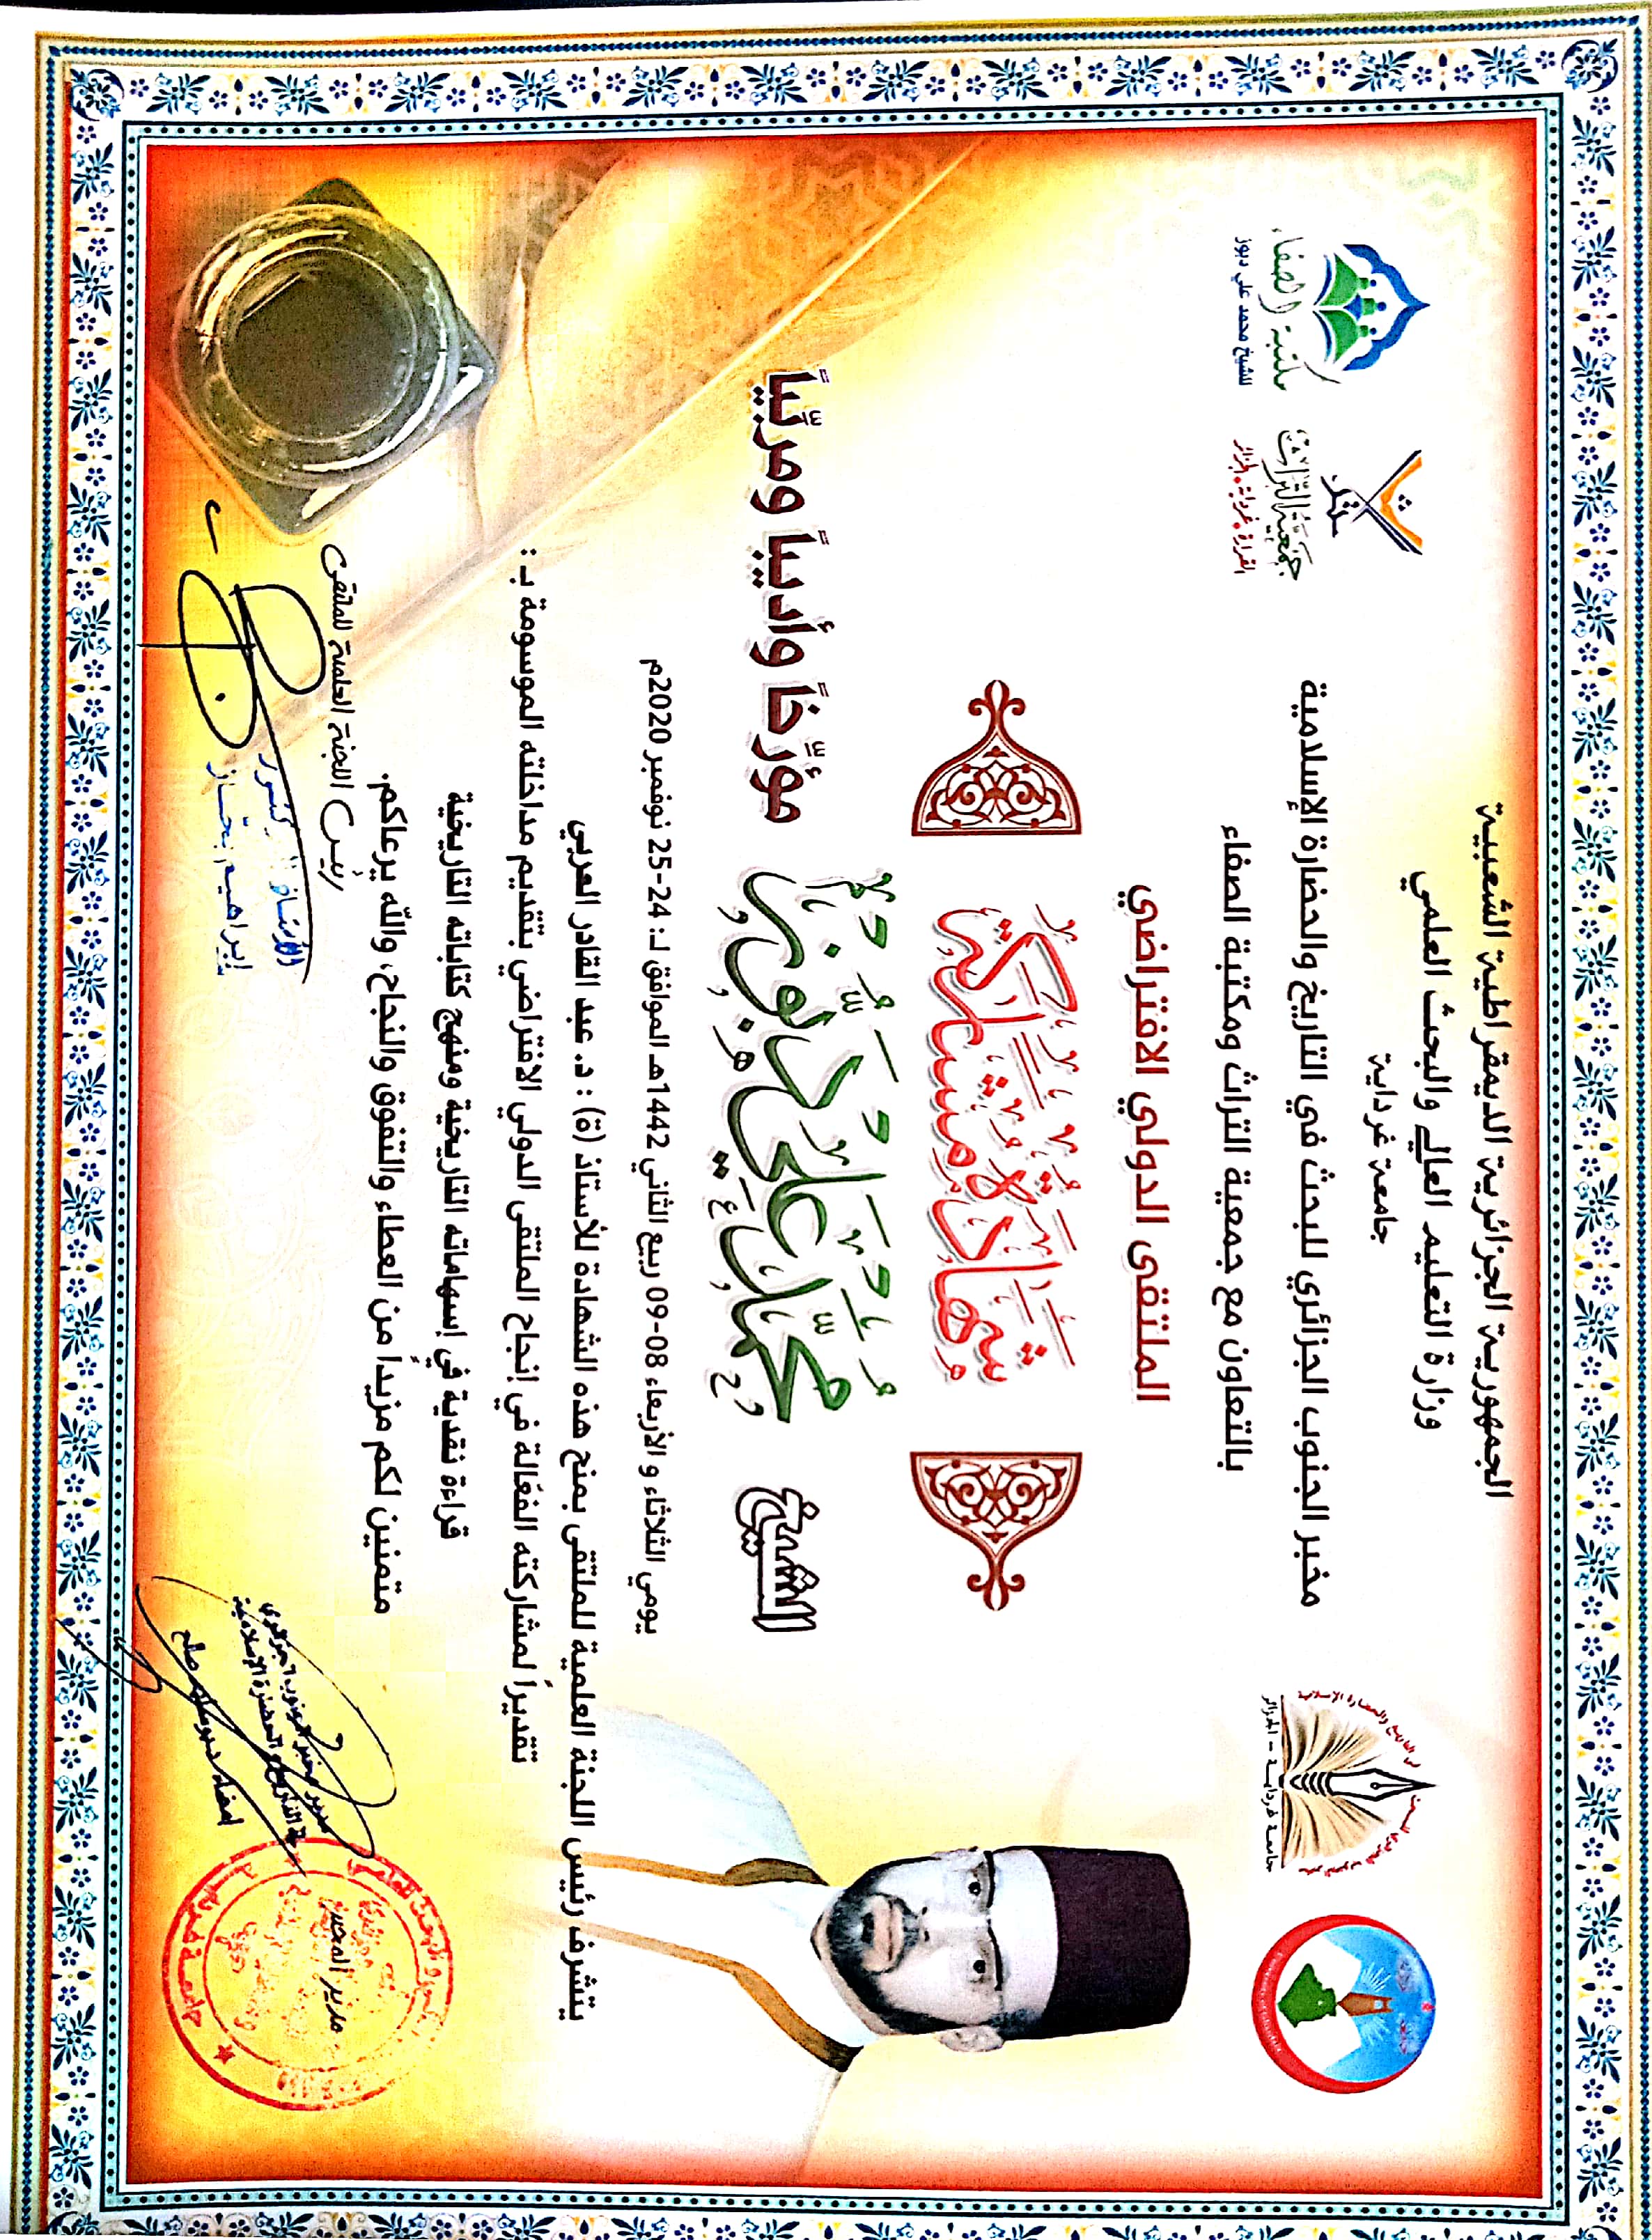 الجمهورية الجزائرية الديمقراطية الشعبية
وزارة التعليم العالي والبحث العلمي
جامعة غرداية
مخبر الجنوب الجزائري للبحث في التاريخ والحضارة الإسلامية
بالتعاون مع جمعية التراث ومكتبة الصفاء
جامعة غرداية - الجزائر
جمعية التراث
القرارة غرداية الجزائر
مكتبة الصفاء
للشيخ محمد علي دبوز
الملتقى الدولي الافتراضي
شهادة مشاركة
الشيخ محمد علي دبوز مؤرّخًا وأديبًا ومربّيًا
يومي الثلاثاء و الأربعاء 08-09 ربيع الثاني 1442هـ الموافق لـ: 24-25 نوفمبر 2020م
يتشرف رئيس اللجنة العلمية للملتقى بمنح هذه الشهادة للأستاذ (ة) : د. عبد القادر العربي
تقديراً لمشاركته الفعّالة في إنجاح الملتقى الدولي الافتراضي بتقديم مداخلته الموسومة بـ :
قراءة نقدية في إسهاماته التاريخية ومنهج كتاباته التاريخية
متمنين لكم مزيداً من العطاء والتفوق والنجاح، والله يرعاكم.
رئيس اللجنة العلمية للملتقى
الأستاذ الدكتور
إبراهيم بحاز
مدير المخبر